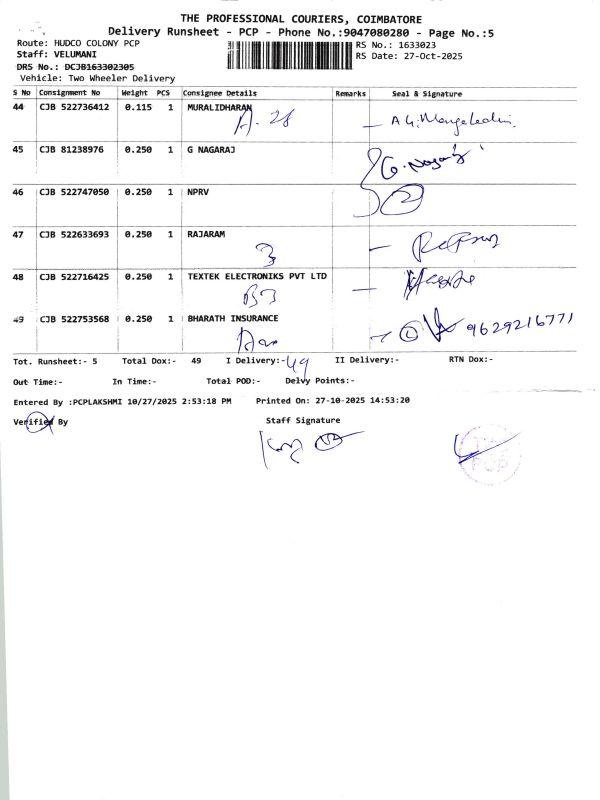 THE PROFESSIONAL COURIERS, COIMBATORE
Delivery Runsheet - PCP - Phone No.:9047080280 - Page No.:5
Route: HUDCO COLONY PCP RS No.: 1633023
Staff: VELUMANI RS Date: 27-Oct-2025
DRS No.: DCJB163302305
Vehicle: Two Wheeler Delivery
S No Consignment No Weight PCS Consignee Details Remarks Seal & Signature
44 CJB 522736412 0.115 1 MURALIDHARAN
A. 28
45 CJB 81238976 0.250 1 G NAGARAJ
G. Nagaraj
46 CJB 522747050 0.250 1 NPRV
47 CJB 522633693 0.250 1 RAJARAM
48 CJB 522716425 0.250 1 TEXTEK ELECTRONIKS PVT LTD
49 CJB 522753568 0.250 1 BHARATH INSURANCE
9629216771
Tot. Runsheet:- 5 Total Dox:- 49 I Delivery:- 49 II Delivery:- RTN Dox:-
Out Time:- In Time:- Total POD:- Delvy Points:-
Entered By :PCPLAKSHMI 10/27/2025 2:53:18 PM Printed On: 27-10-2025 14:53:20
Verified By Staff Signature
PCP